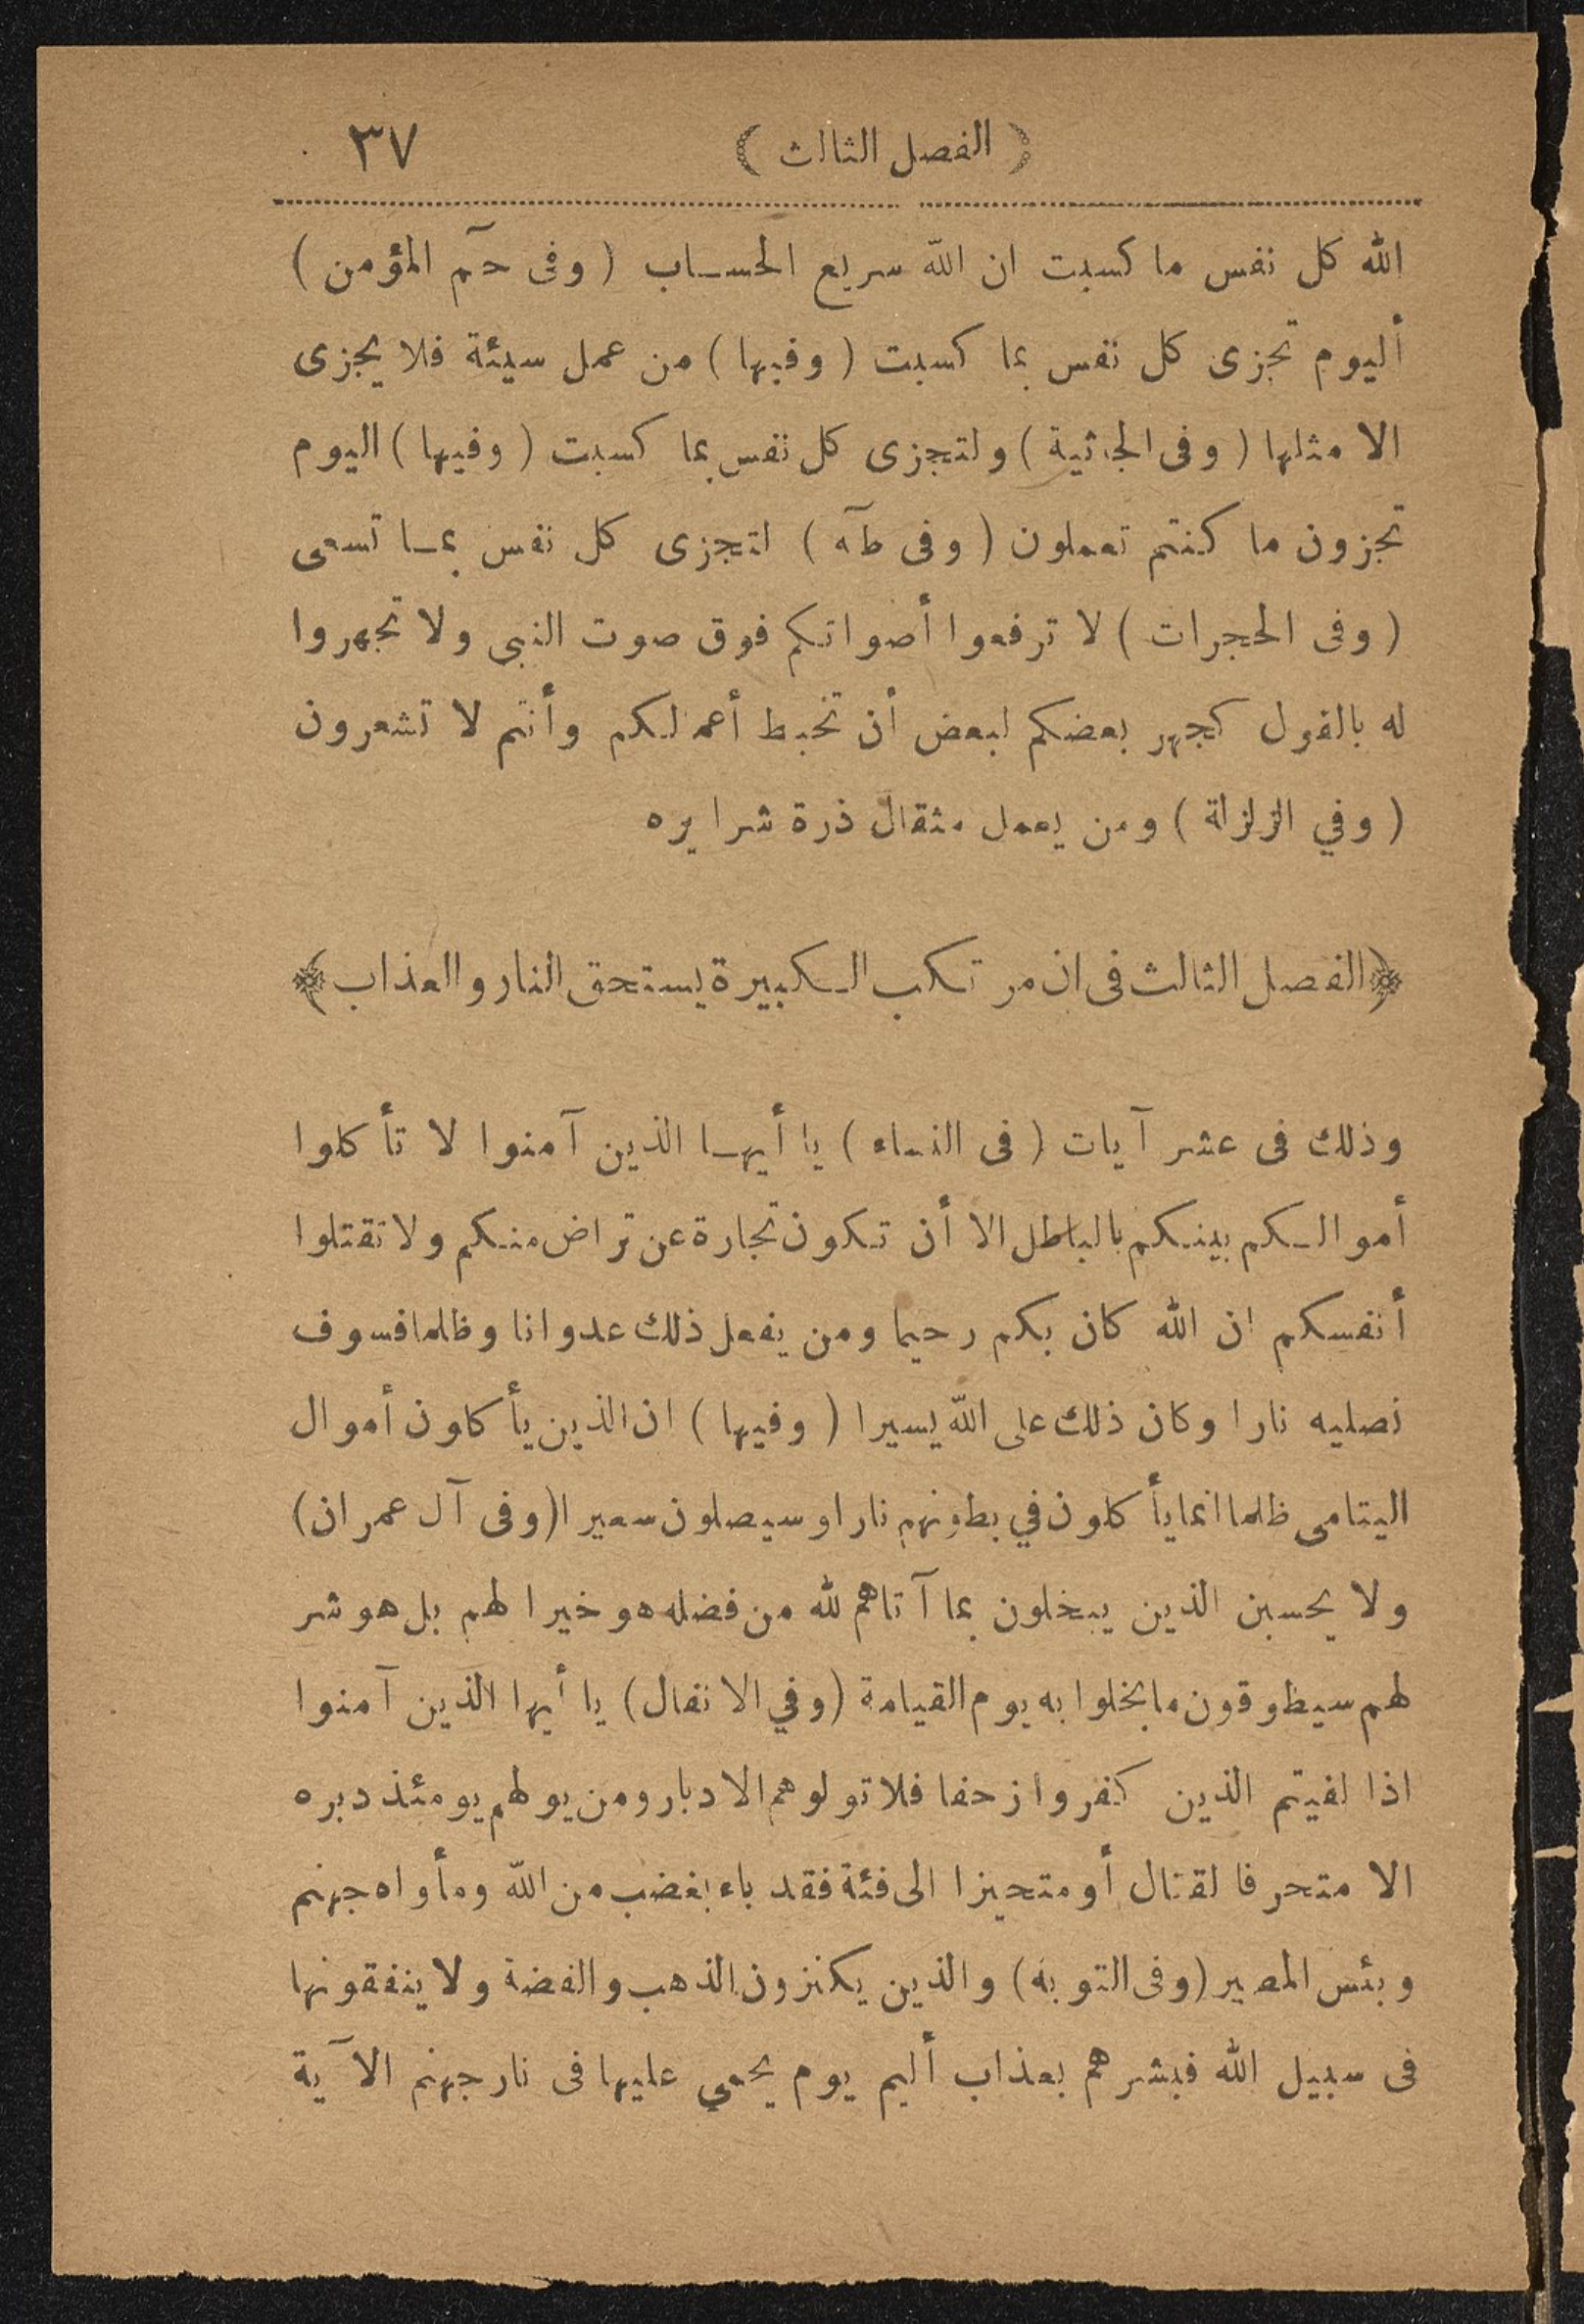 ( الفصل الثالث ) ٣٧
الله كل نفس ما كسبت ان الله سريع الحساب ( وفى حمٓ المؤمن )
أليوم تجزى كل نفس بما كسبت ( وفيها ) من عمل سيئة فلا يجزى
الا مثلها ( وفى الجاثية ) ولتجزى كل نفس بما كسبت ( وفيها ) اليوم
تجزون ما كنتم تعملون ( وفى طٓه ) لتجزى كل نفس بما تسعى
( وفى الحجرات ) لا ترفعوا أصواتكم فوق صوت النبى ولا تجهروا
له بالقول كجهر بعضكم لبعض أن تحبط أعمالكم وأنتم لا تشعرون
( وفي الزلزلة ) ومن يعمل مثقال ذرة شرا يره
﴿ الفصل الثالث فى ان مرتكب الكبيرة يستحق النار والعذاب ﴾
وذلك فى عشر آيات ( فى النساء ) يا أيها الذين آمنوا لا تأكلوا
أموالكم بينكم بالباطل الا أن تكون تجارة عن تراض منكم ولا تقتلوا
أنفسكم ان الله كان بكم رحيما ومن يفعل ذلك عدوانا وظلما فسوف
نصليه نارا وكان ذلك على الله يسيرا ( وفيها ) ان الذين يأكلون أموال
اليتامى ظلما انما يأكلون في بطونهم نارا وسيصلون سعيرا (وفى آل عمران)
ولا يحسبن الذين يبخلون بما آتاهم لله من فضله هو خيرا لهم بل هو شر
لهم سيطوقون ما بخلوا به يوم القيامة (وفي الانفال) يا أيها الذين آمنوا
اذا لقيتم الذين كفروا زحفا فلا تولوهم الادبار ومن يولهم يومئذ دبره
الا متحرفا لقتال أو متحيزا الى فئة فقد باء بغضب من الله ومأواه جهنم
وبئس المصير (وفى التوبة) والذين يكنزون الذهب والفضة ولا ينفقونها
فى سبيل الله فبشرهم بعذاب أليم يوم يحمي عليها فى نار جهنم الآية